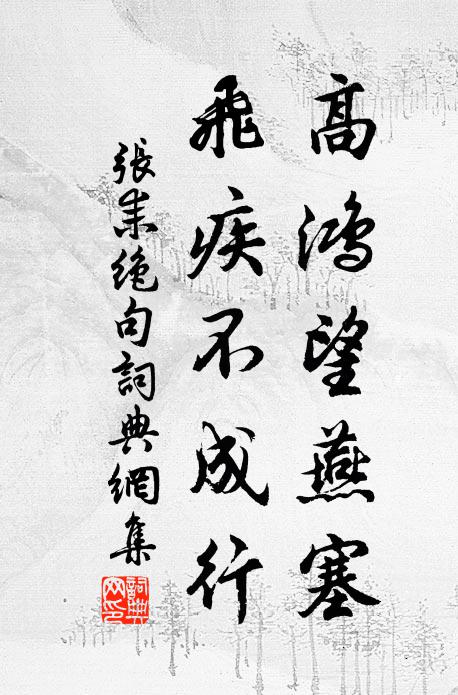 高鴻望燕塞
飛疾不成行
張耒絶句詞典網集
詞典网印